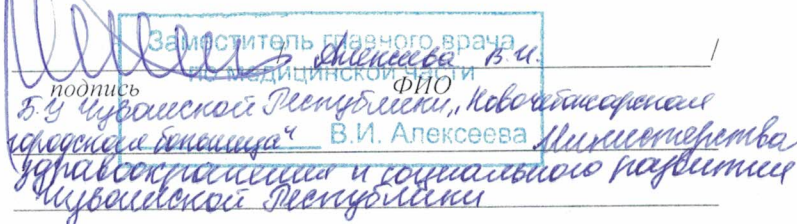 Заместитель главного врача
/ Алексеева В.И. /
по медицинской части
подпись ФИО
БУ Чувашской Республики „Новочебоксарская
городская больница" В.И. Алексеева Министерства
здравоохранения и социального развития
Чувашской Республики